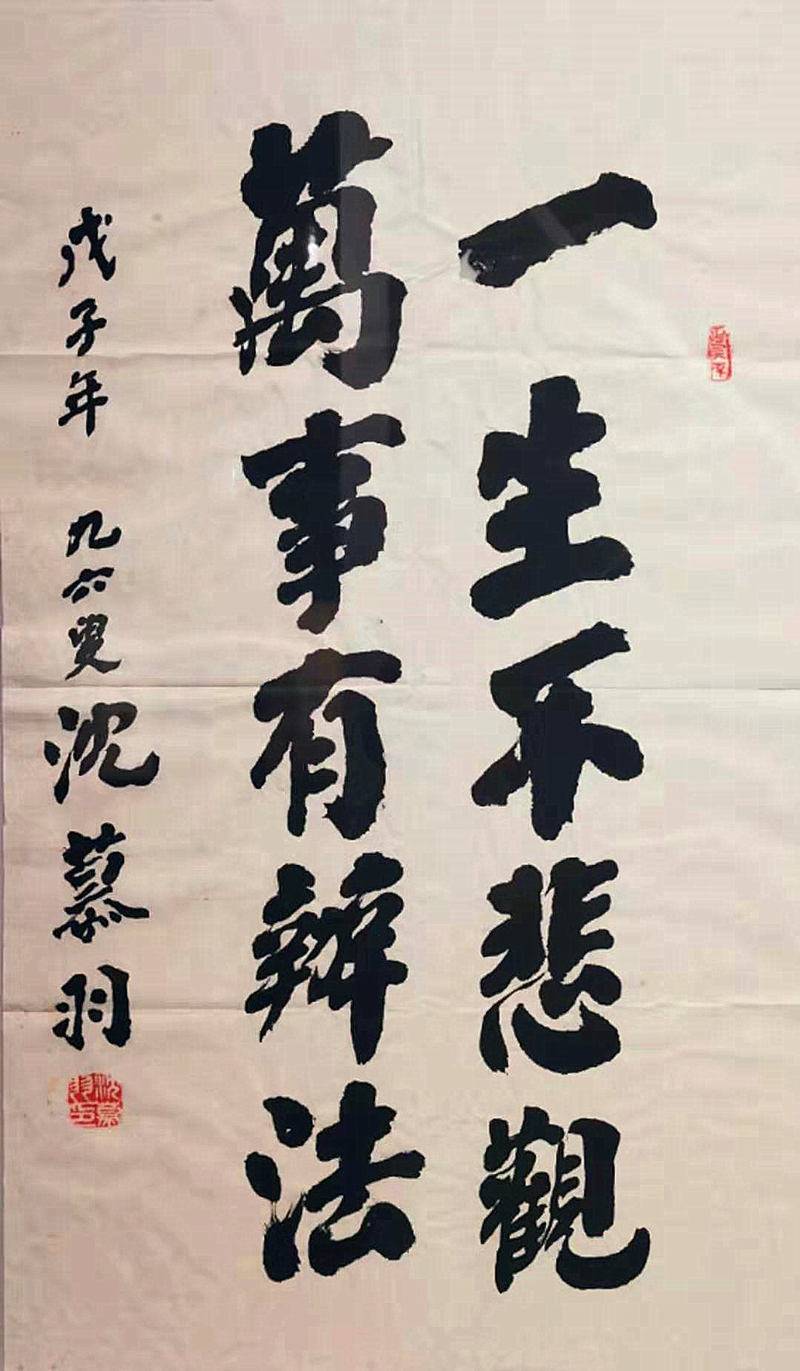 一生不悲觀
萬事有辦法
戊子年 九六叟 沈慕羽
沈慕羽印